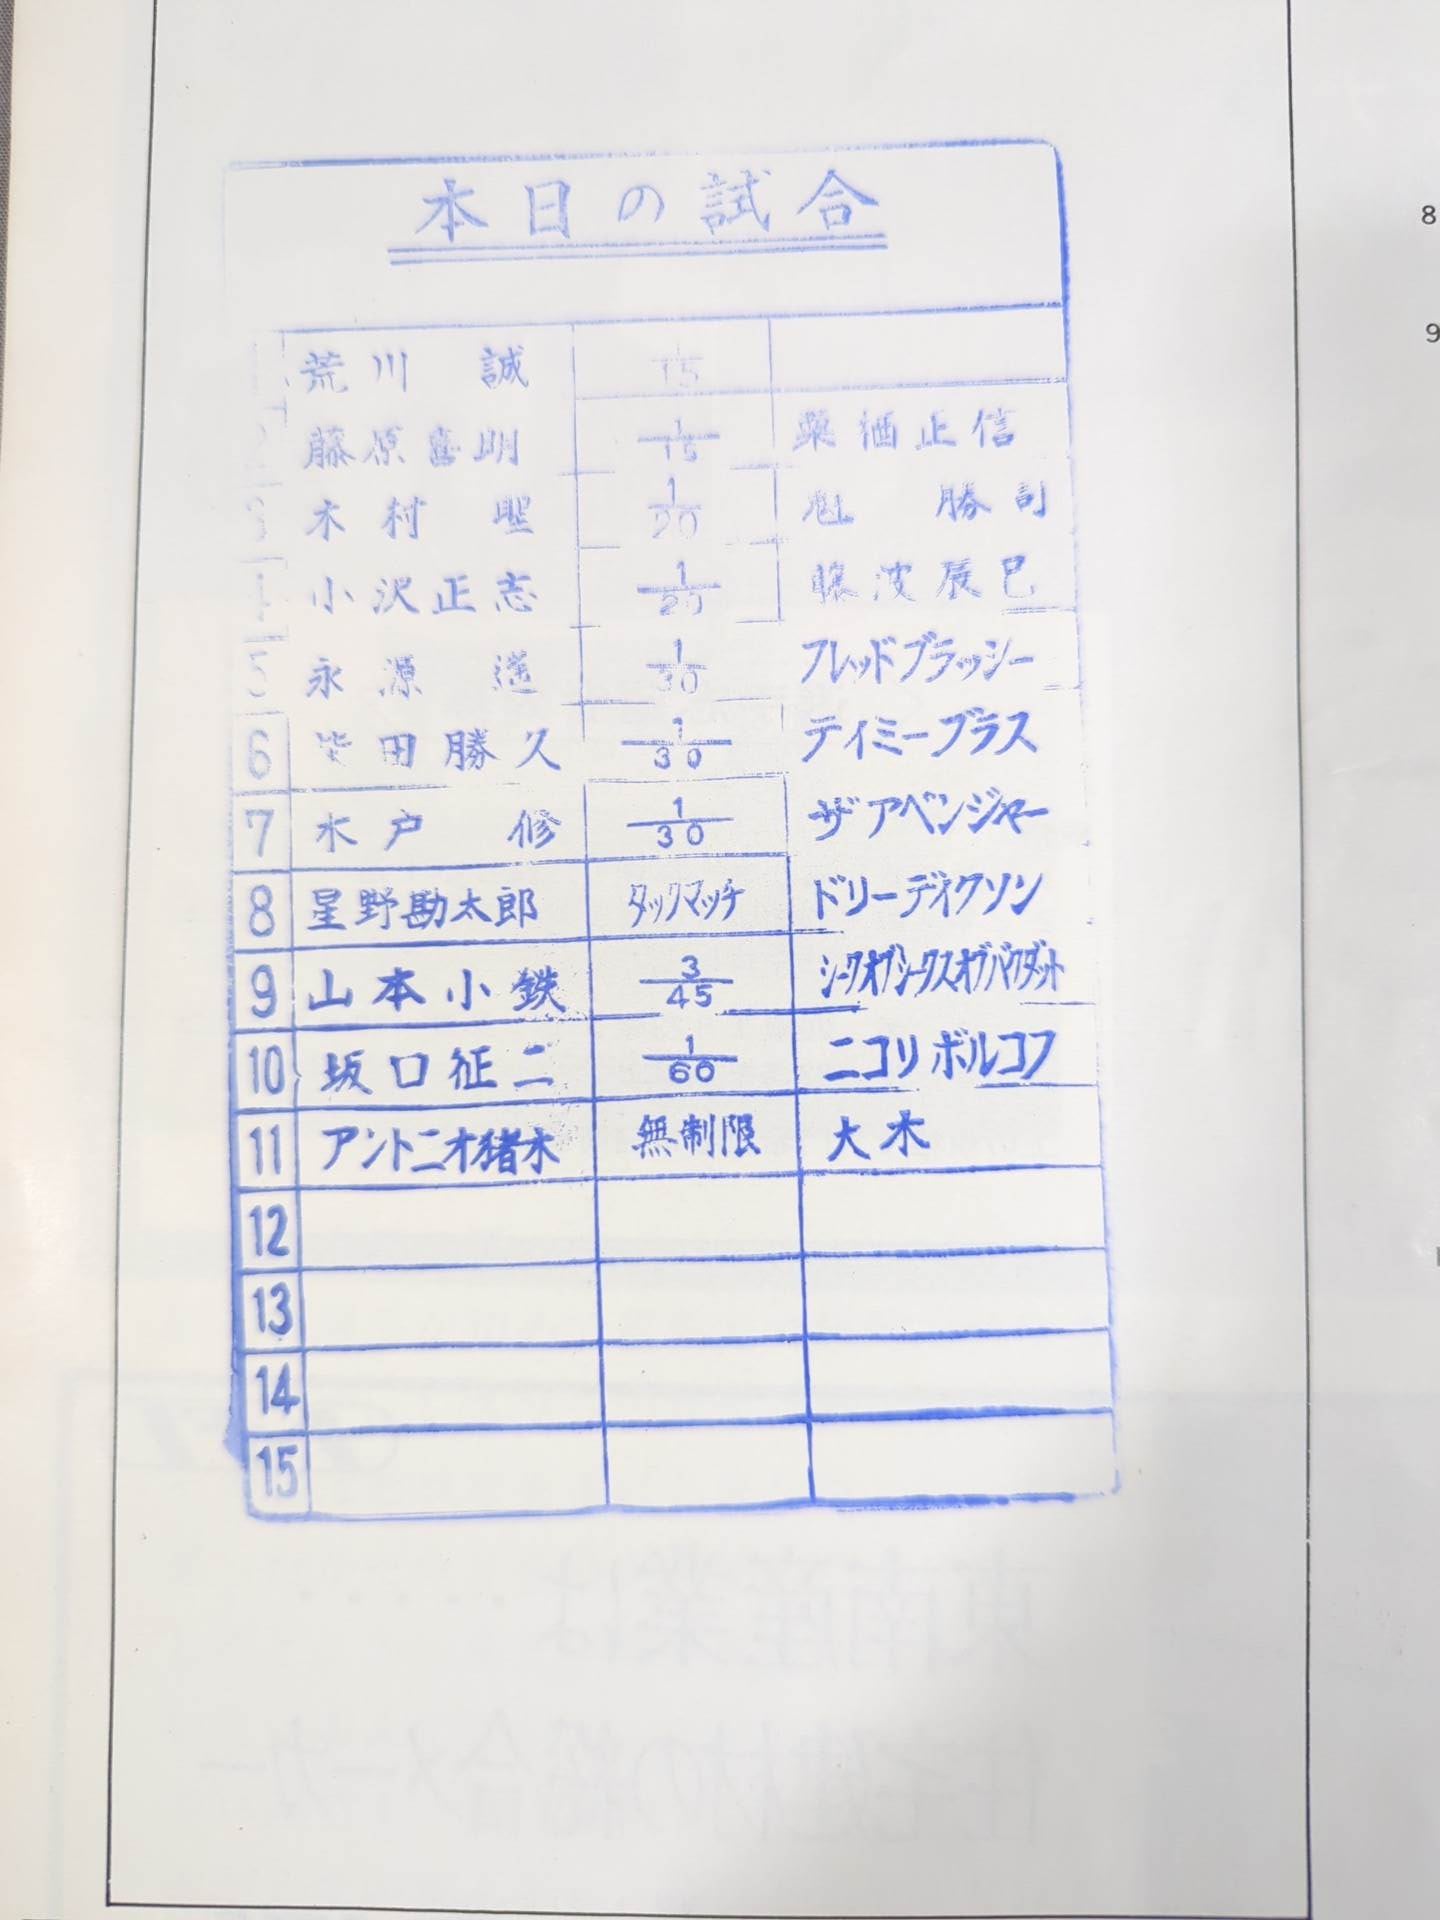 本日の試合
荒川 誠 1/15
藤原喜明 1/15 栗栖正信
木村 聖 1/20 魁 勝司
小沢正志 1/20 藤波辰巳
5 永源 遥 1/30 フレッドブラッシー
6 柴田勝久 1/30 ティミーブラス
7 木戸 修 1/30 ザアベンジャー
8 星野勘太郎 タックマッチ ドリーディクソン
9 山本小鉄 3/45 シークオブシークスオブバクダット
10 坂口征二 1/60 ニコリボルコフ
11 アントニオ猪木 無制限 大木
12
13
14
15
8
9